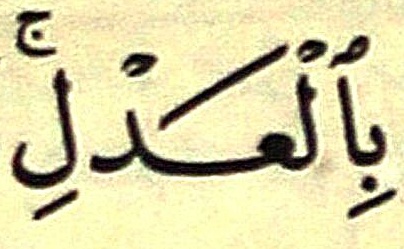 بِٱلْعَدْلِۚ